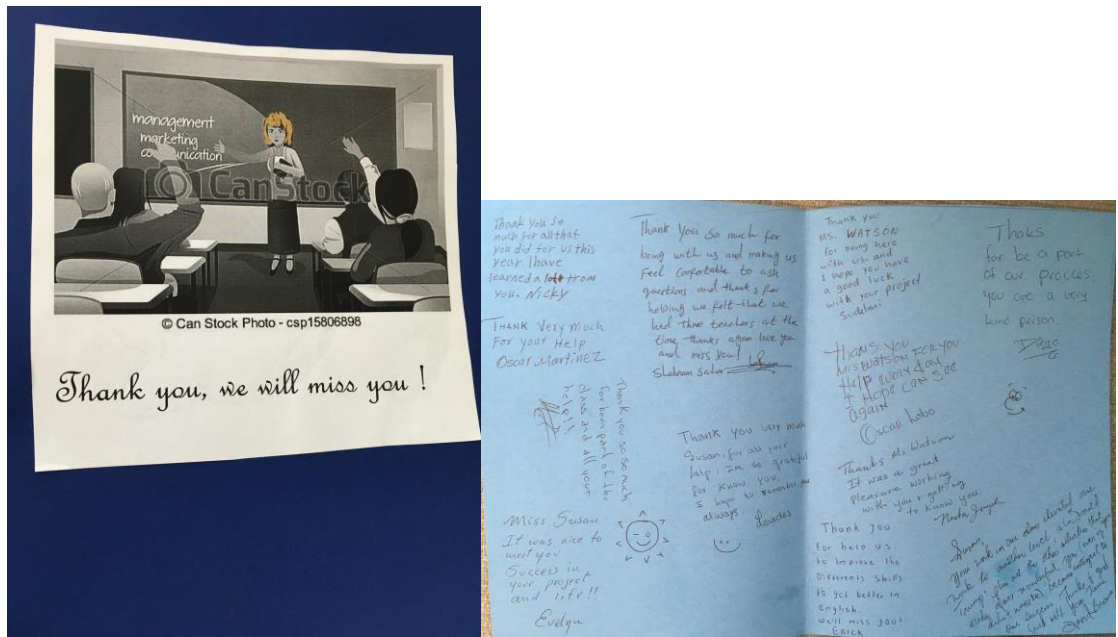 management
marketing
communication
© CanStock
© Can Stock Photo - csp15806898
Thank you, we will miss you !
Thank you so
much for all that
you did for us this
year I have
learned a lot from
you. Nicky
THANK Very Much
For your Help
Oscar Martinez
Thank you so so much
for been part of the
class and all your
help!!
Miss Susan
It was nice to
meet you
Success in
your project
and life!!
Evelyn
Thank you so much for
being with us and making us
feel comfortable to ask
questions. and thanks for
helping we felt that we
had three teachers at the
time, thanks again love you
and miss you!
Shabnam Sahar
Thank you very much
Susan, for all your
help, I'm so grateful
for know you,
I hope to remember me
always.
Lourdes
Thank you
MS. WATSON
for being here
with us. and
I hope you have
a good luck
with your project
THANS YOU
MISS WATSON FOR YOU
Help every day
I Hope CAN See
again
Oscar Lobo
Thanks Ms Watson
It was a great
pleasure working
with you & getting
to know you.
Thank you
for help us
to improve the
Differents skills
to get better in
english.
we'll miss you!
Erick
Thaks
for be a part
of our procces.
you are a very
kind person.
Diego
Susan,
Your work in our class elevated our
work to another level, a small